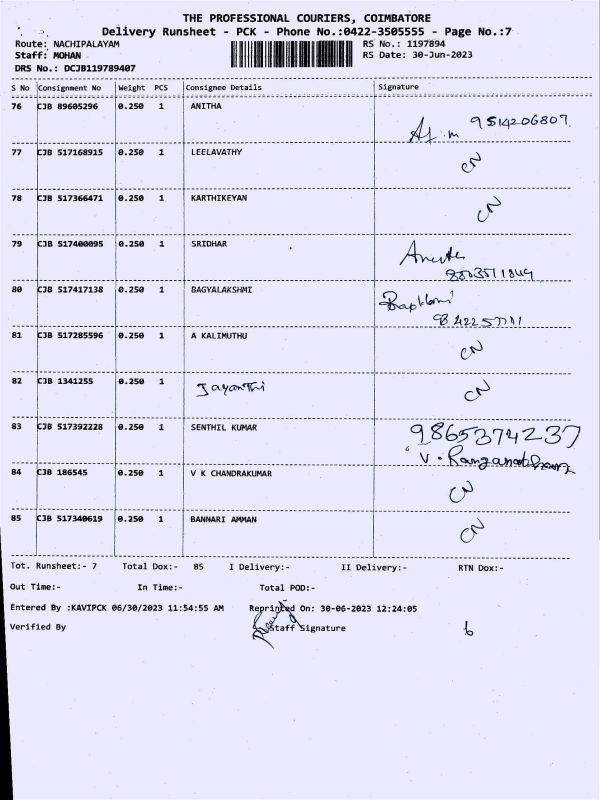 THE PROFESSIONAL COURIERS, COIMBATORE
Delivery Runsheet - PCK - Phone No.:0422-3505555 - Page No.:7
Route: NACHIPALAYAM RS No.: 1197894
Staff: MOHAN RS Date: 30-Jun-2023
DRS No.: DCJB119789407
S No Consignment No Weight PCS Consignee Details Signature
76 CJB 89605296 0.250 1 ANITHA
9514206807
77 CJB 517168915 0.250 1 LEELAVATHY
CN
78 CJB 517366471 0.250 1 KARTHIKEYAN
CN
79 CJB 517400095 0.250 1 SRIDHAR
80 CJB 517417138 0.250 1 BAGYALAKSHMI
81 CJB 517285596 0.250 1 A KALIMUTHU
CN
82 CJB 1341255 0.250 1 Jayanthi
CN
83 CJB 517392228 0.250 1 SENTHIL KUMAR 9865374237
V.
84 CJB 186545 0.250 1 V K CHANDRAKUMAR
CN
85 CJB 517340619 0.250 1 BANNARI AMMAN
CN
Tot. Runsheet:- 7 Total Dox:- 85 I Delivery:- II Delivery:- RTN Dox:-
Out Time:- In Time:- Total POD:-
Entered By :KAVIPCK 06/30/2023 11:54:55 AM Reprinted On: 30-06-2023 12:24:05
Verified By Staff Signature 6